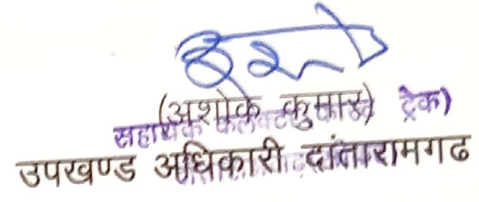 (अशोक कुमार)
सहायक कलक्टर ट्रेक)
उपखण्ड अधिकारी दांतारामगढ